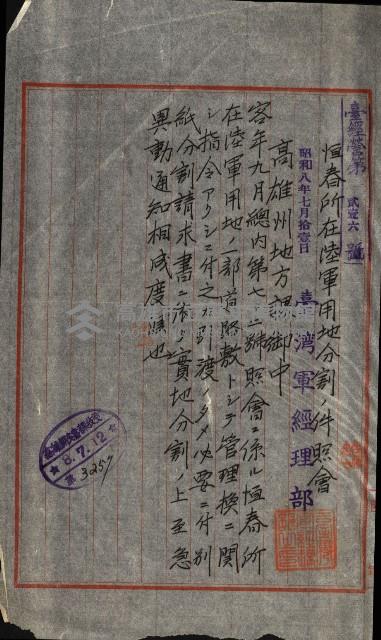 臺經營第貳壹六號
恒春所在陸軍用地分割ノ件照會
昭和八年七月拾壹日
臺灣軍經理部
高雄州地方課御中
客年九月總内第七二號照會ニ係ル恒春所
在陸軍用地ノ一部道路敷トシテ管理換ニ関
シ指令アリシニ付之カ引渡ノタメ必要ニ付別
紙分割請求書ニ依リ實地分割ノ上至急
異動通知相成度照會也
8.7.12
第3257